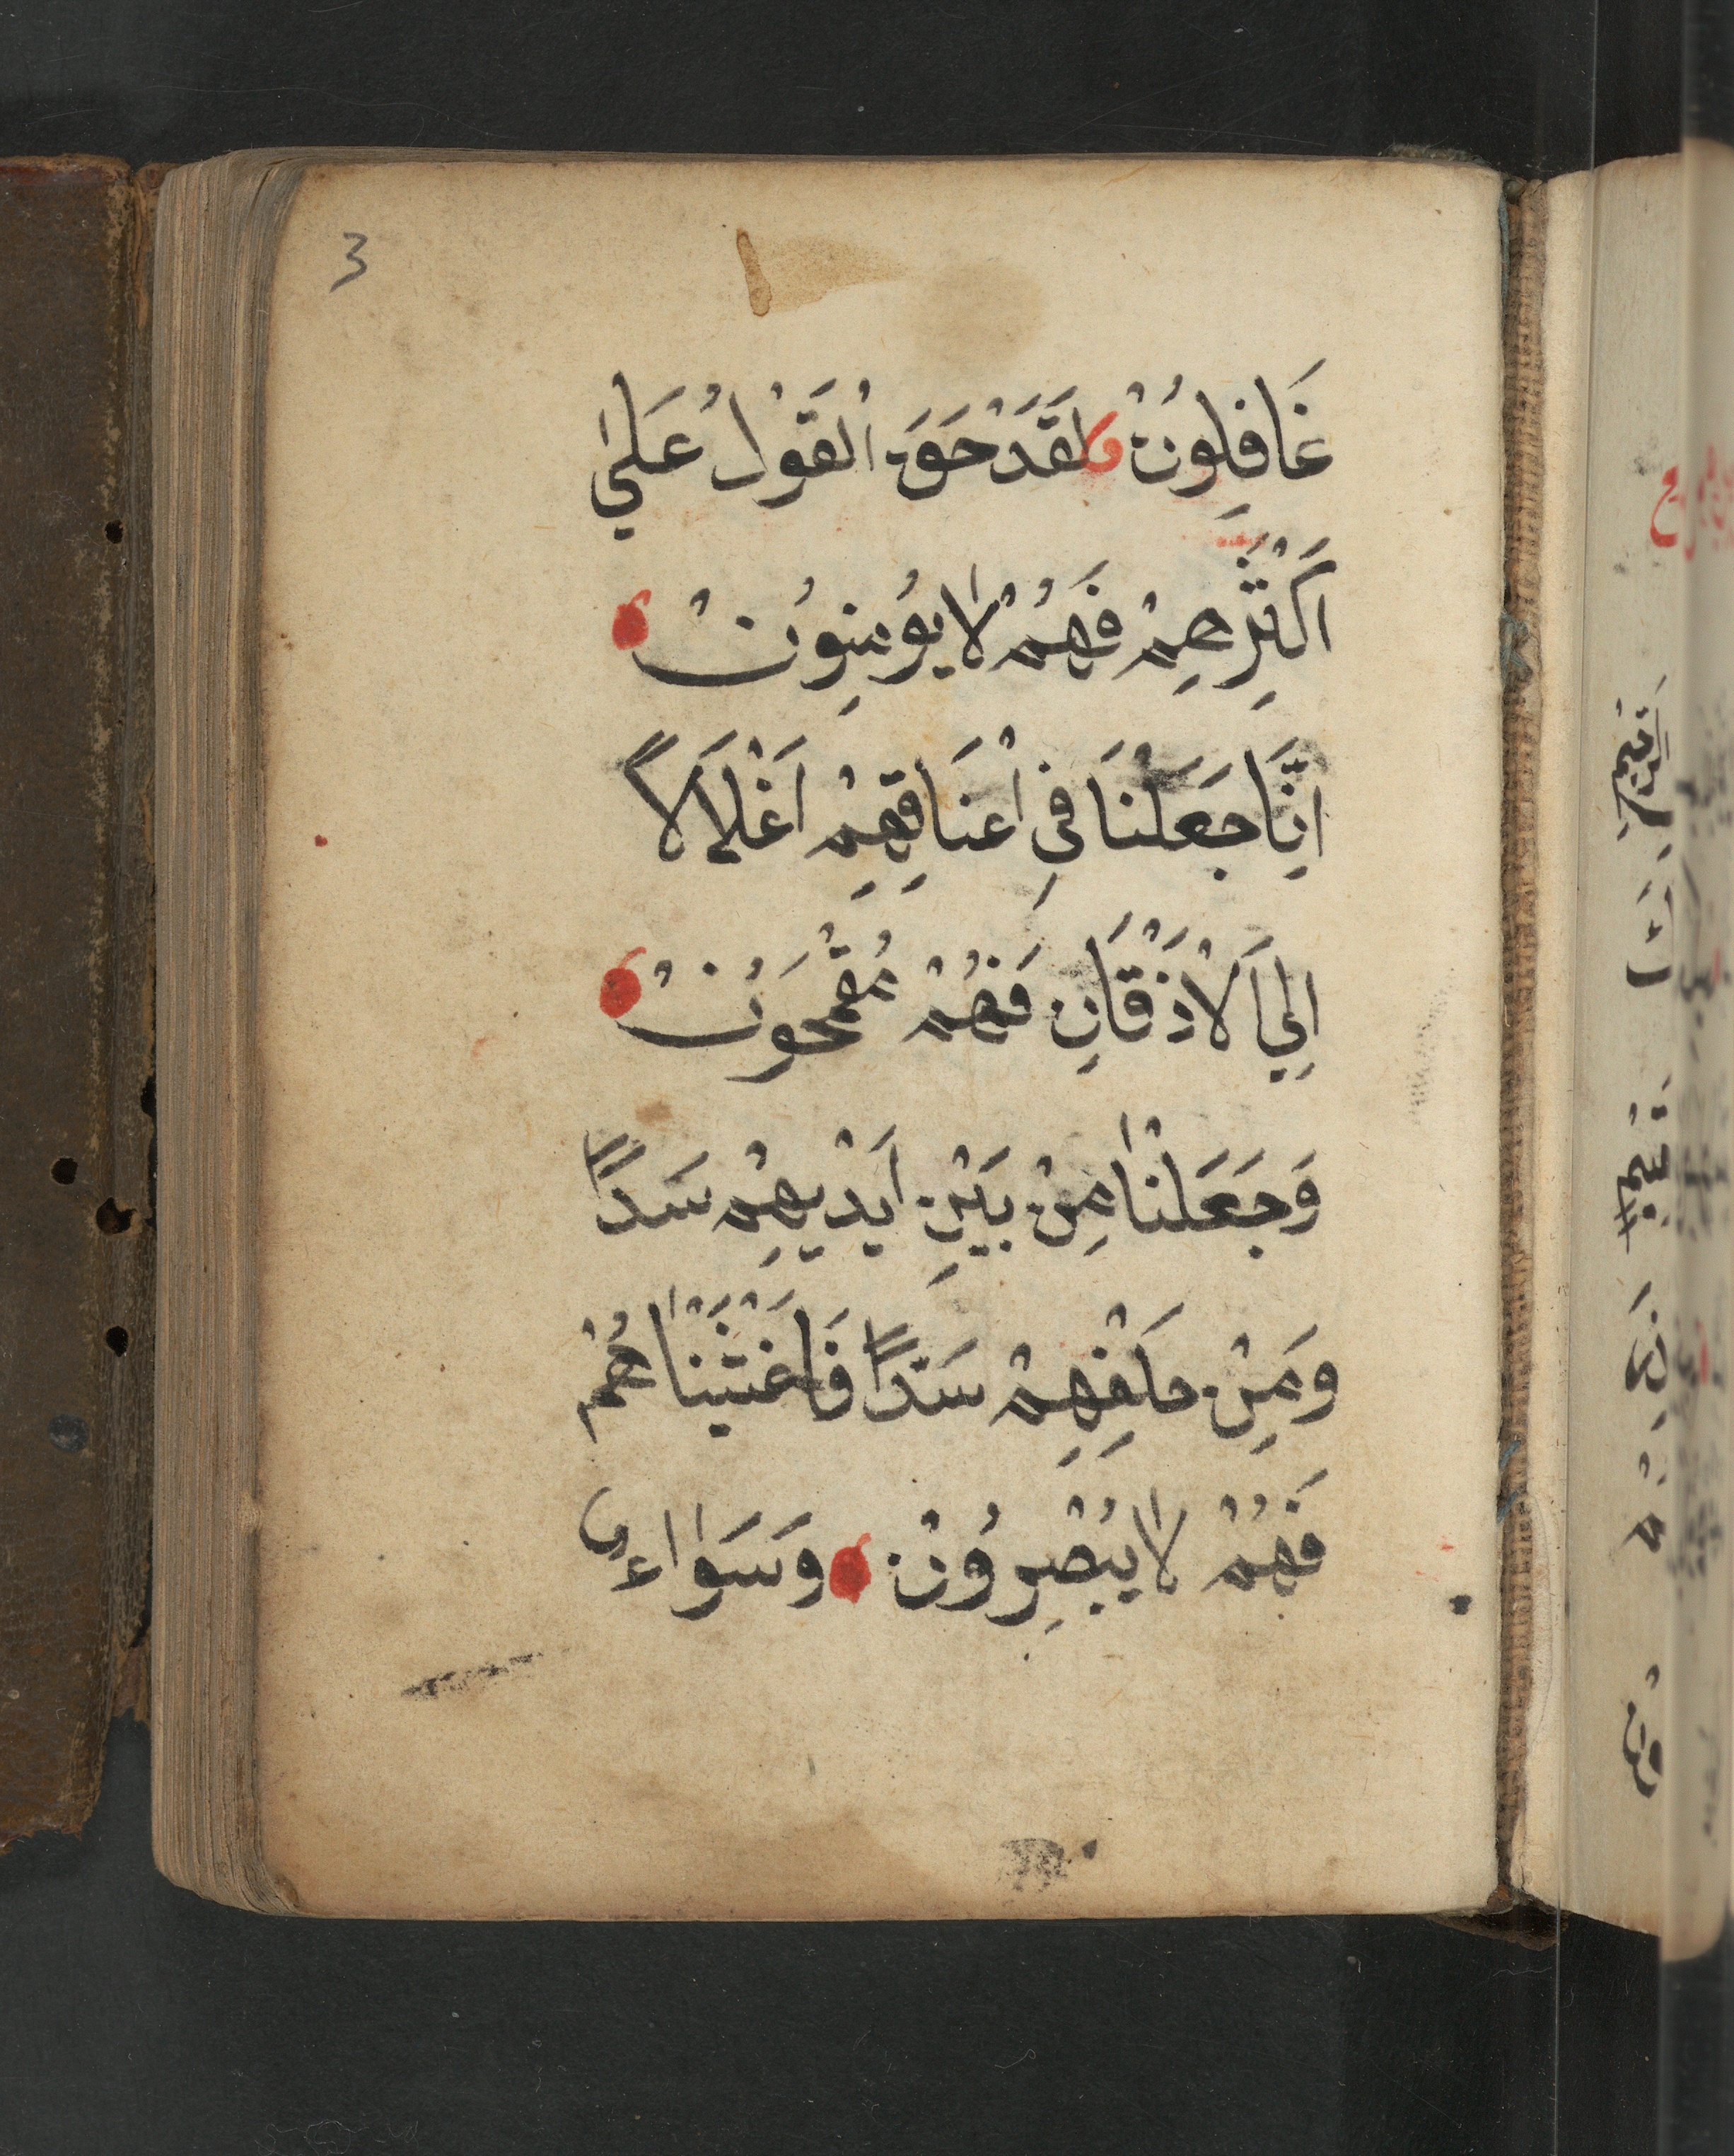 3
غَافِلُونْ لَقَدْ حَقَ اْلقَوْلُ عَلىٰ
اَكْثَرِهِمْ فَهُمْ لاٰ يُومِنوُنْ
اِنَّا جَعَلْنَا فىِ اَعْنَاقِهِمْ اَغْلَالاً
اِلىَ الْاَذْقَانِ فَهُمْ مُقْمَحَوُنْ
وَجَعَلْنٰا مِنْ بَيْنِ اَيْديهِمْ سَدًّا
وَمِنْ خَلْفِهِمْ سَدًّا فَاَغْشَيْنٰا هُمْ
فَهُمْ لاٰ يُبْصِروُنْ وَسَوٰاءٌ